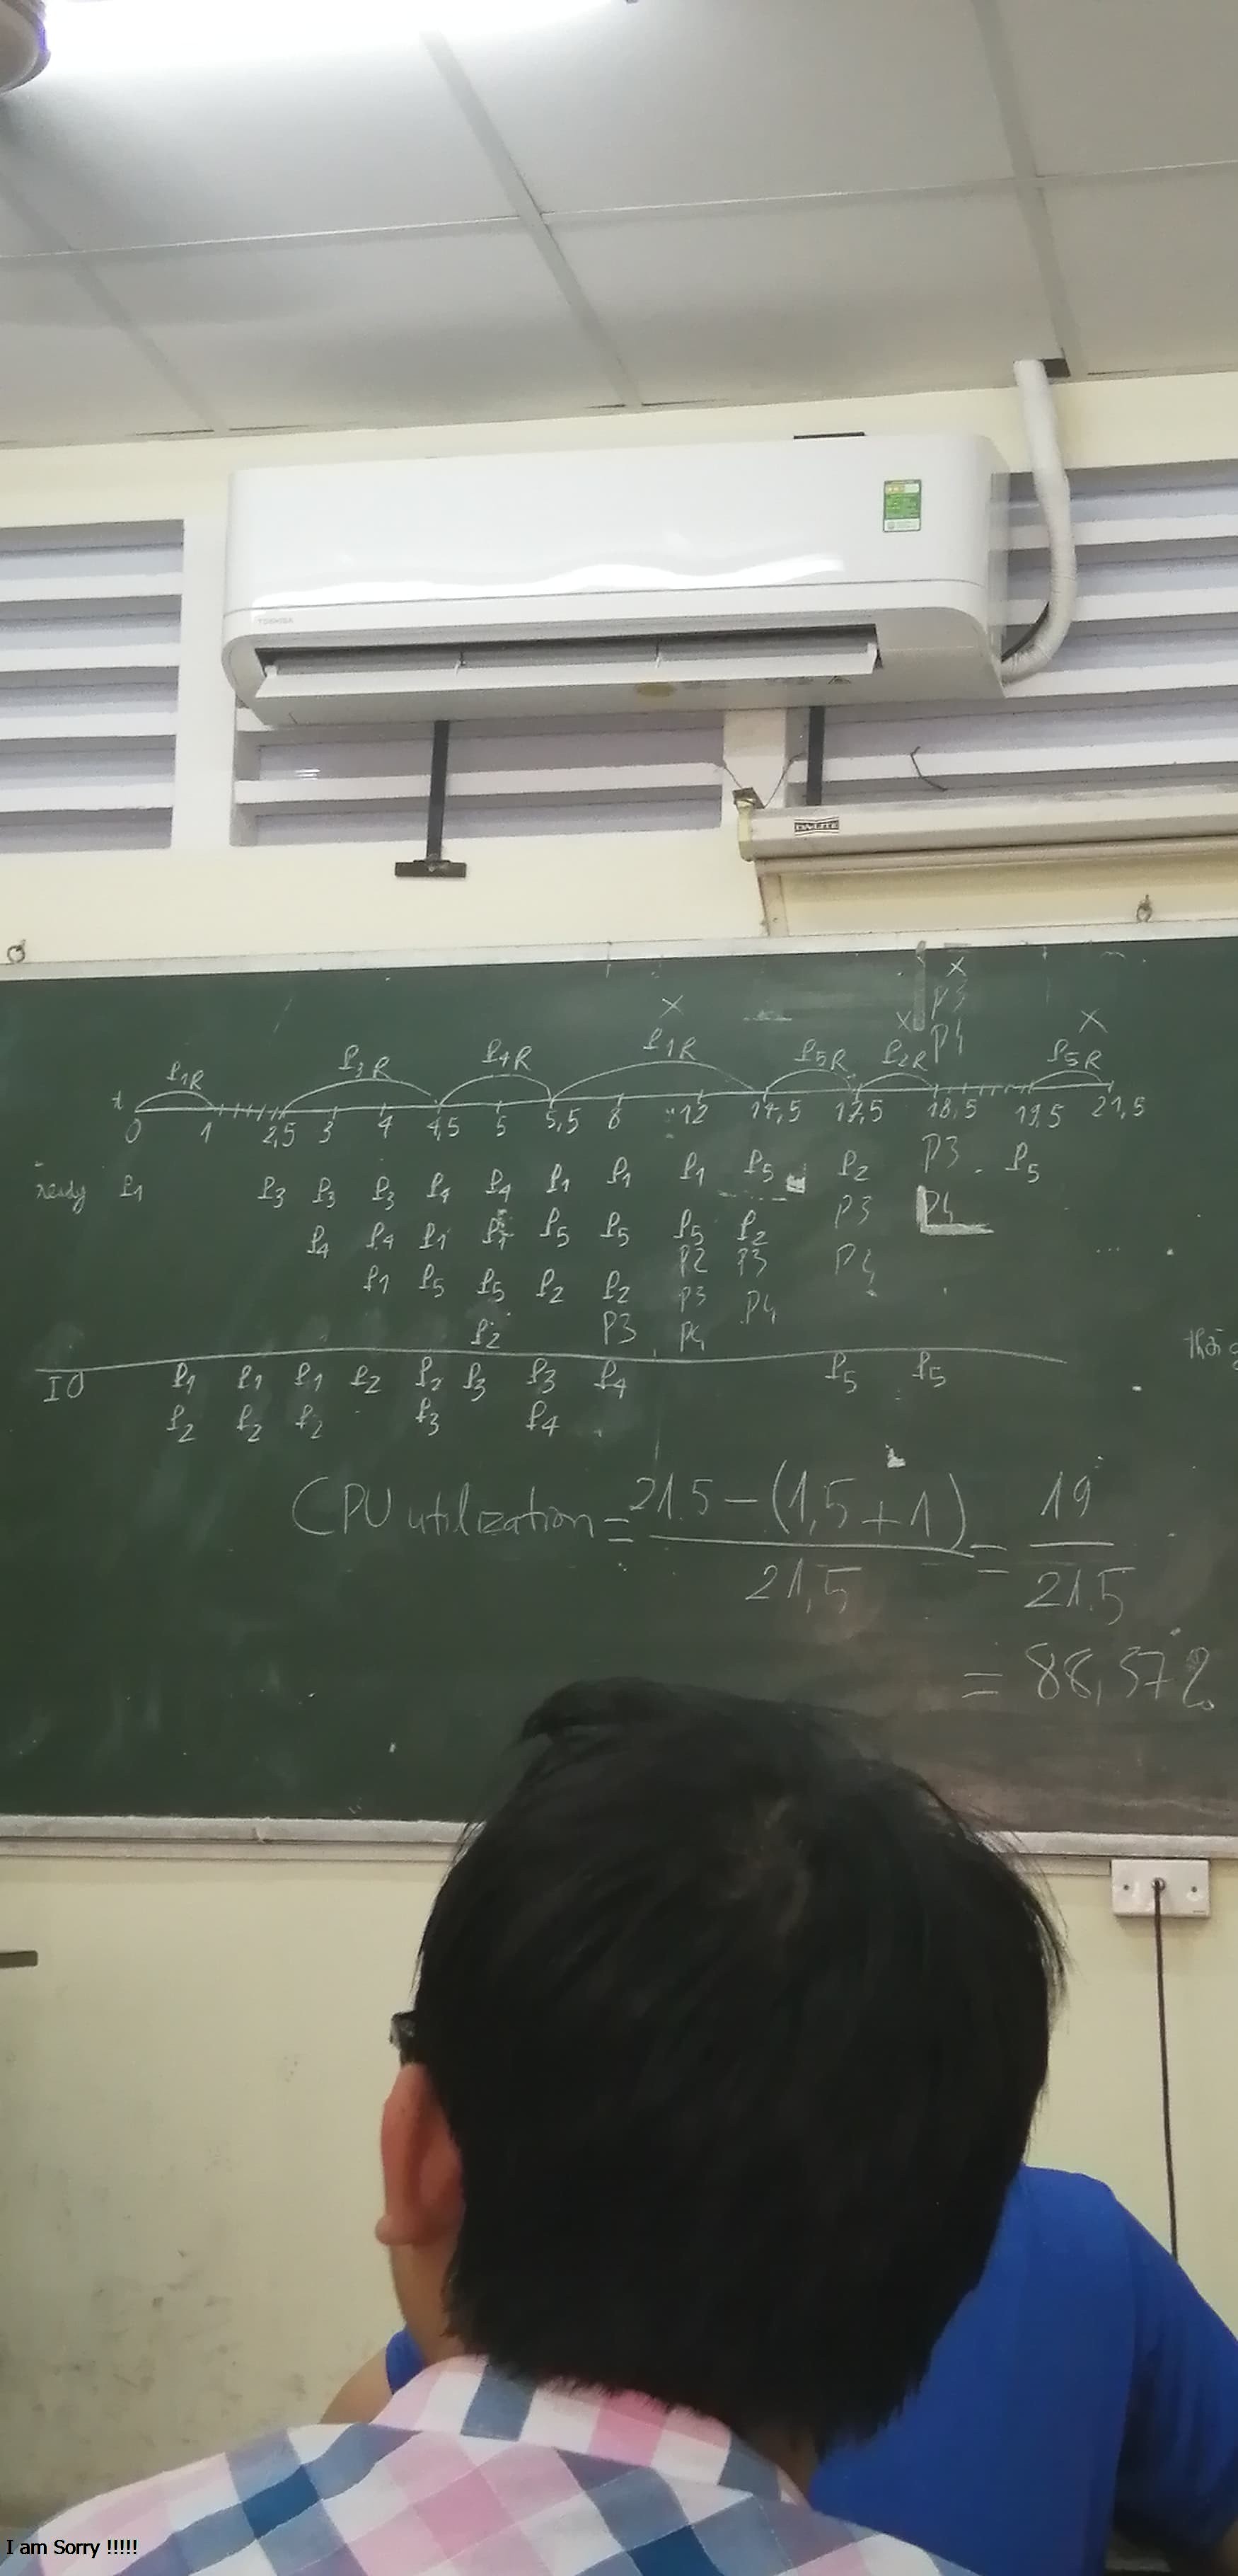 TOSHIBA
DA-LITE
X
X P3
X P4 X
P1R P3R P4R P1R P5R P2R P5R
t
0 1 2,5 3 4 4,5 5 5,5 8 12 14,5 17,5 18,5 19,5 21,5
ready P1 P3 P3 P3 P4 P4 P1 P1 P1 P5 P2 P3 P5
P4 P4 P1 P1 P5 P5 P5 P2 P3 P4
P1 P5 P5 P2 P2 P2 P3 P4
P2 P3 P3 P4
P4
IO P1 P1 P1 P2 P2 P3 P3 P4 P5 P5
P2 P2 P2 P3 P4
CPU utilization = 21.5 - (1,5 + 1) / 21,5 = 19 / 21.5
= 88,37%
I am Sorry !!!!!